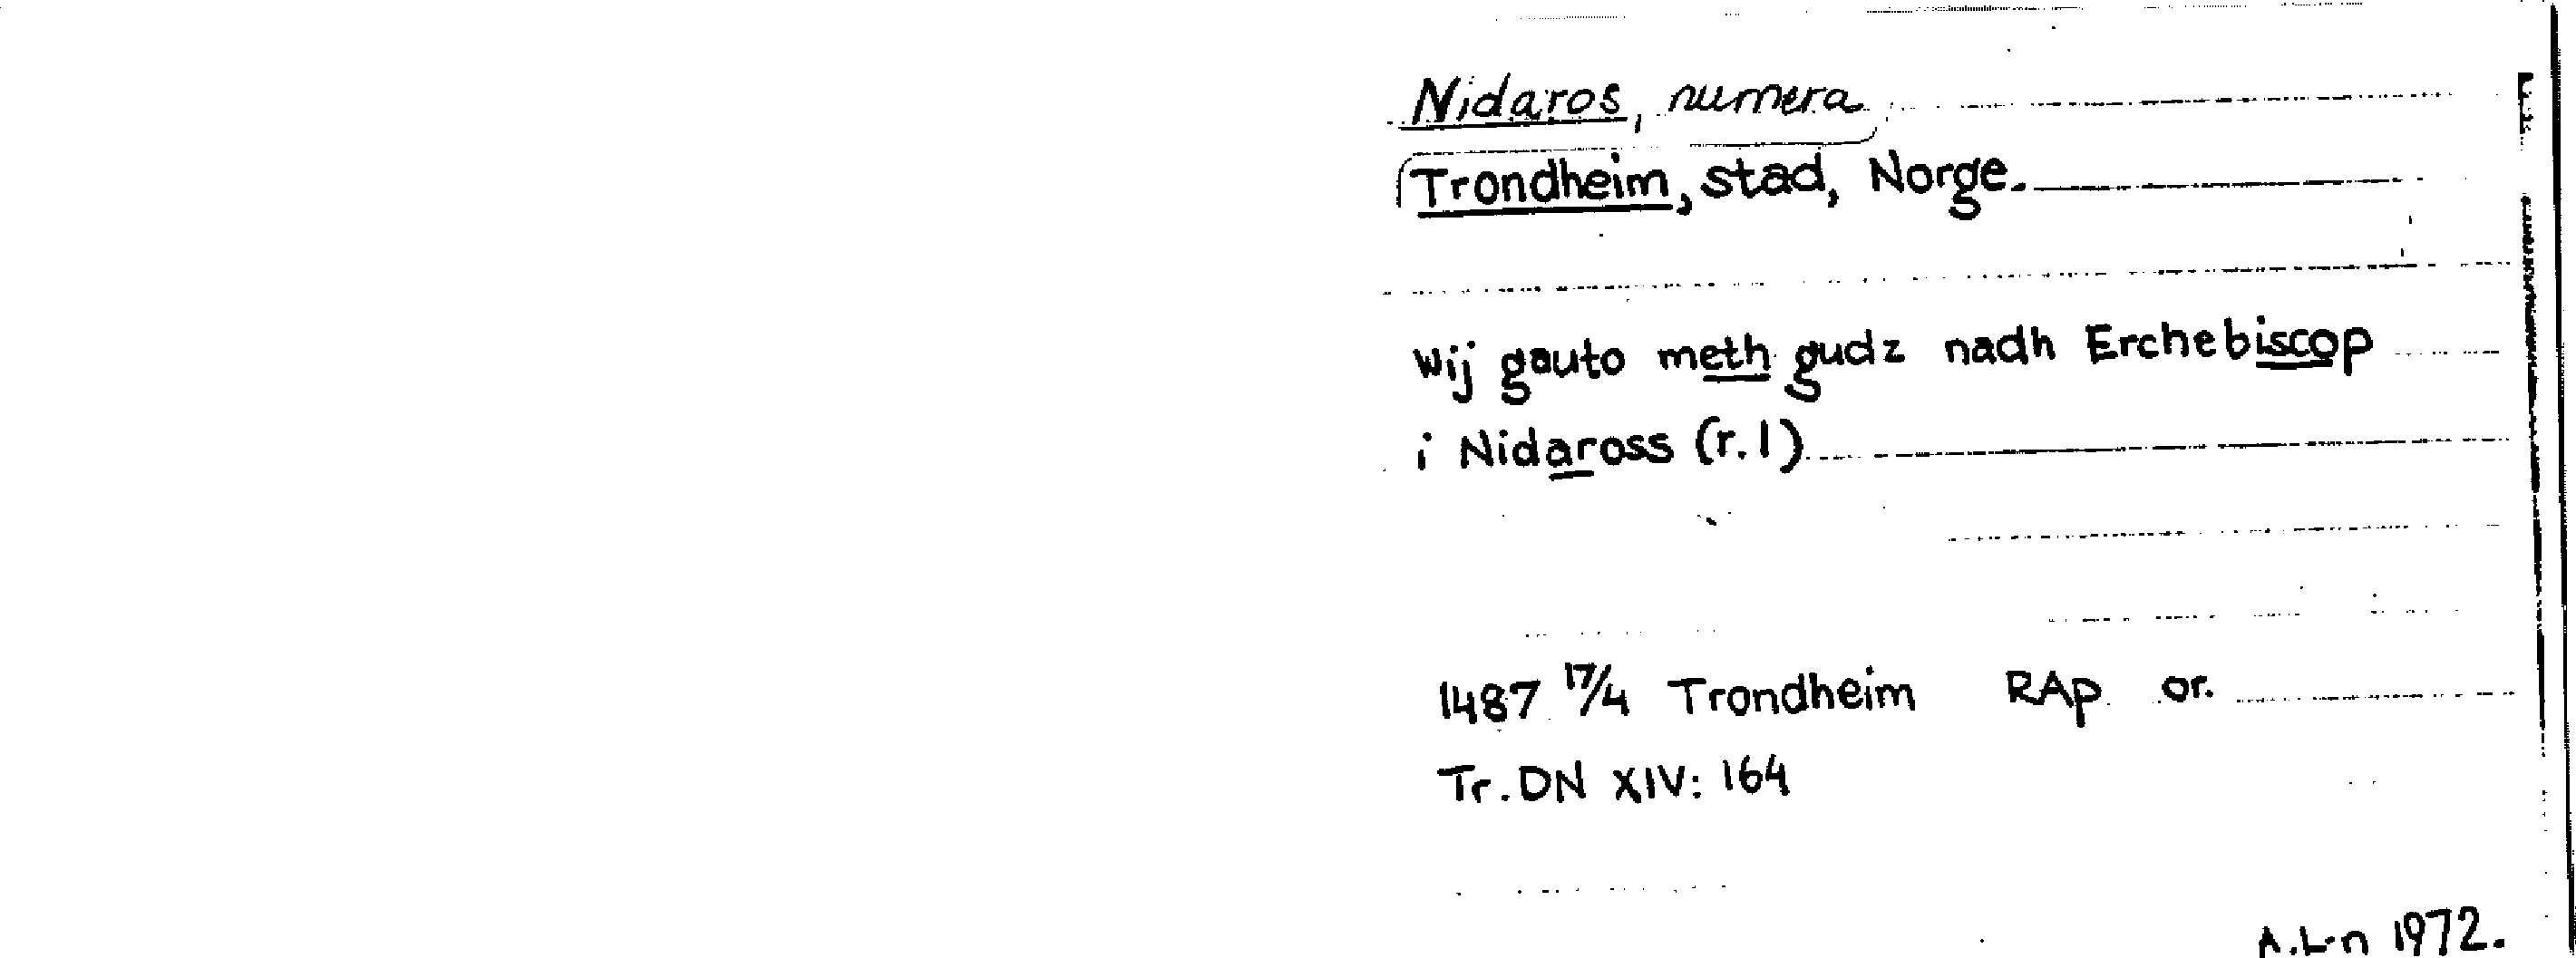 Nidaros, numera
Trondheim, stad, Norge.
Wij gauto meth gudz nadh Erchebiscop
i Nidaross (r.1)
1487 17/4 Trondheim RAp or.
Tr. DN XIV: 164
A.L-n 1972.